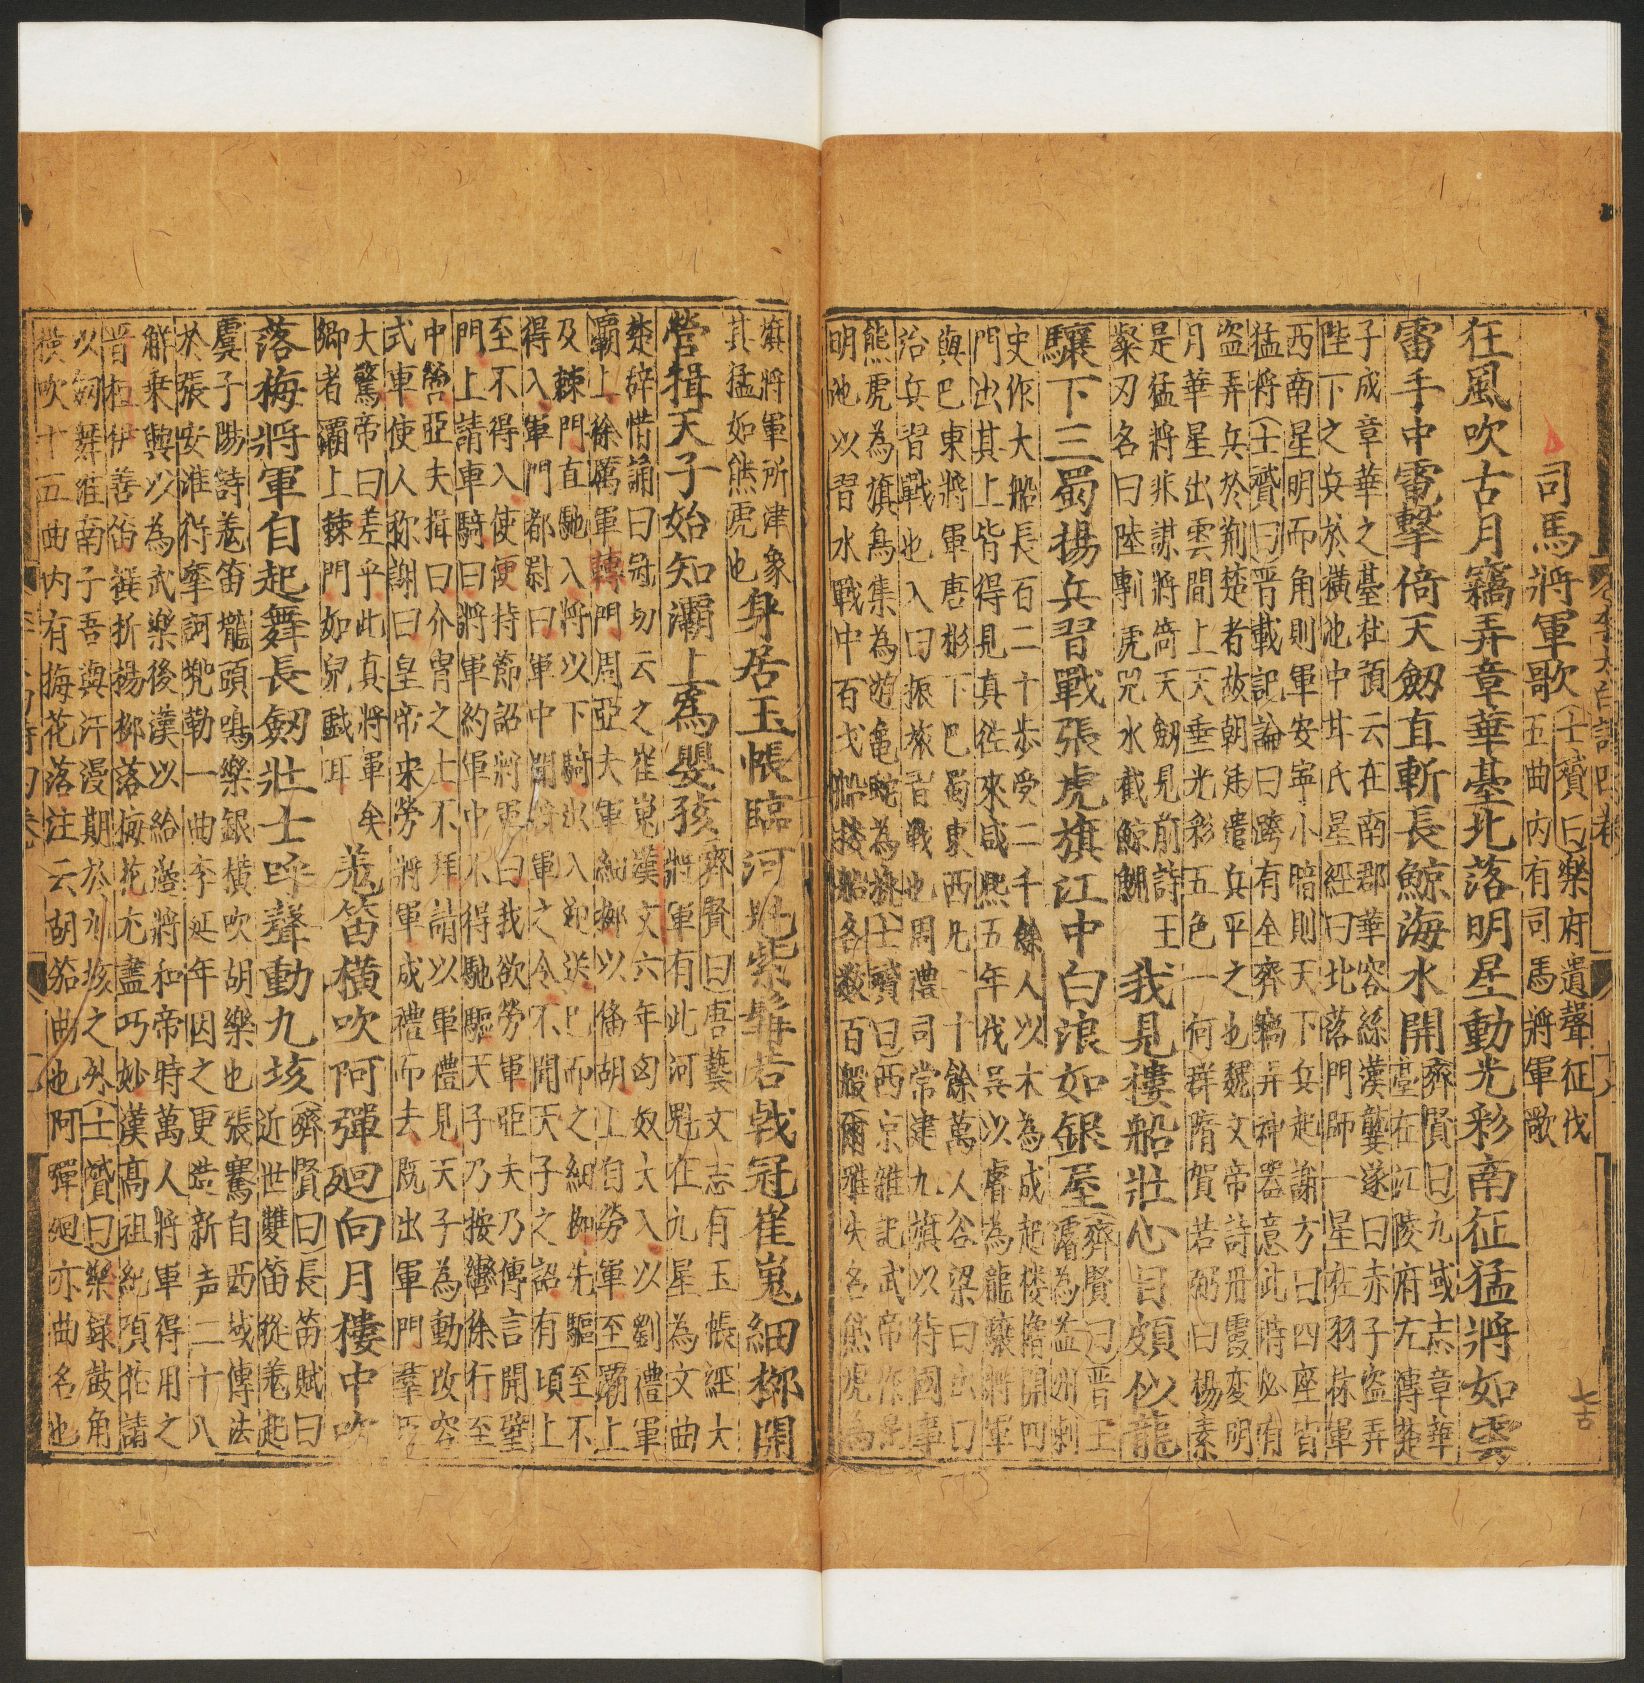 司馬將軍歌
(士贇曰)樂府遺聲征伐
五曲內有司馬將軍歌
狂風吹古月竊弄章華臺北落明星動光彩南征猛將如雲
雷手中電擊倚天劒直斬長鯨海水開
(齊賢曰)九域志章華
臺在江陵府左傳楚
子成章華之臺杜預云在南郡華容縣漢龔遂曰赤子盗弄
陛下之兵於潢池中甘氏星經曰北落門師一星在羽林軍
西南星明而角則軍安寧小暗則天下兵起謝方曰四座皆
猛將(士贇曰)晋載記論曰跨有全齊竊弄神器意此時必有
盗弄兵於荊楚者故朝廷遣兵平之也魏文帝詩丹霞変明
月華星出雲間上天垂光彩五色一何鮮隋賀若弼曰楊素
是猛將非謀將倚天劒見前詩王
粲刃名曰陸剸虎兕水截鯨鯢
我見樓船壯心目頗似龍
驤下三蜀揚兵習戰張虎旗江中白浪如銀屋
(齊賢曰)晋王
濬為益州刺
史作大船長百二十步受二千餘人以木為成起楼櫓開四
門出其上皆得見真徃來咸熙五年伐吳以濬為龍驤將軍
與巴東將軍唐彬下巴蜀東西凡十餘萬人谷梁曰出曰
治兵習戰也入曰振旅習戰也周禮司常建九旗以待國事
熊虎為旗鳥隼為旟龜蛇為旐(士贇曰)西京雜記武帝作昆
明池以習水戰中百戈船樓船各数百艘爾雅失名熊虎為
旗將軍所津象
其猛如熊虎也
身居玉帳臨河魁紫髯若戟冠崔嵬細柳開
營揖天子始知灞上為嬰孩
(齊賢曰)唐藝文志有玉帳經大
將軍有此河魁在九星為文曲
楚辭惜誦曰冠切云之崔嵬漢文六年匈奴大入以劉禮軍
霸上徐厲軍轉門周亞夫軍細柳以俻胡上自勞軍至霸上
及棘門直馳入將以下騎出入迎送已而之細柳先驅至不
得入軍門都尉曰軍中聞將軍之令不聞天子之詔有頃上
至不得入使便持節詔將軍曰我欲勞軍亞夫乃傳言開壁
門上請車騎曰將軍約軍中不得馳驅天子乃按轡徐行至
中營亞夫揖曰介冑之士不拜請以軍禮見天子為動改容
式車使人称謝曰皇帝来勞將軍成禮而去既出軍門羣臣
大驚帝曰差乎此真將軍矣
鄉者灞上棘門如兒戲耳
羗笛橫吹阿嚲廻向月樓中吹
落梅將軍自起舞長劒壯士呼聲動九垓
(齊賢曰)長笛賦曰
近世雙笛從羗起
虞子陽詩羗笛壠頭鳴樂銀橫吹胡樂也張騫自西域傳法
於張安淮得摩訶兜勒一曲李延年因之更造新声二十八
觧乗輿以為武樂後漢以給邉將和帝時萬人將軍得用之
晋桓伊善笛撰折楊柳落梅花尤盡巧妙漢高祖純項莊請
以劒舞淮南子吾與汗漫期於九垓之外(士贇曰)樂録鼓角
橫吹十五曲內有梅花落注云胡笳曲也阿嚲廻亦曲名也